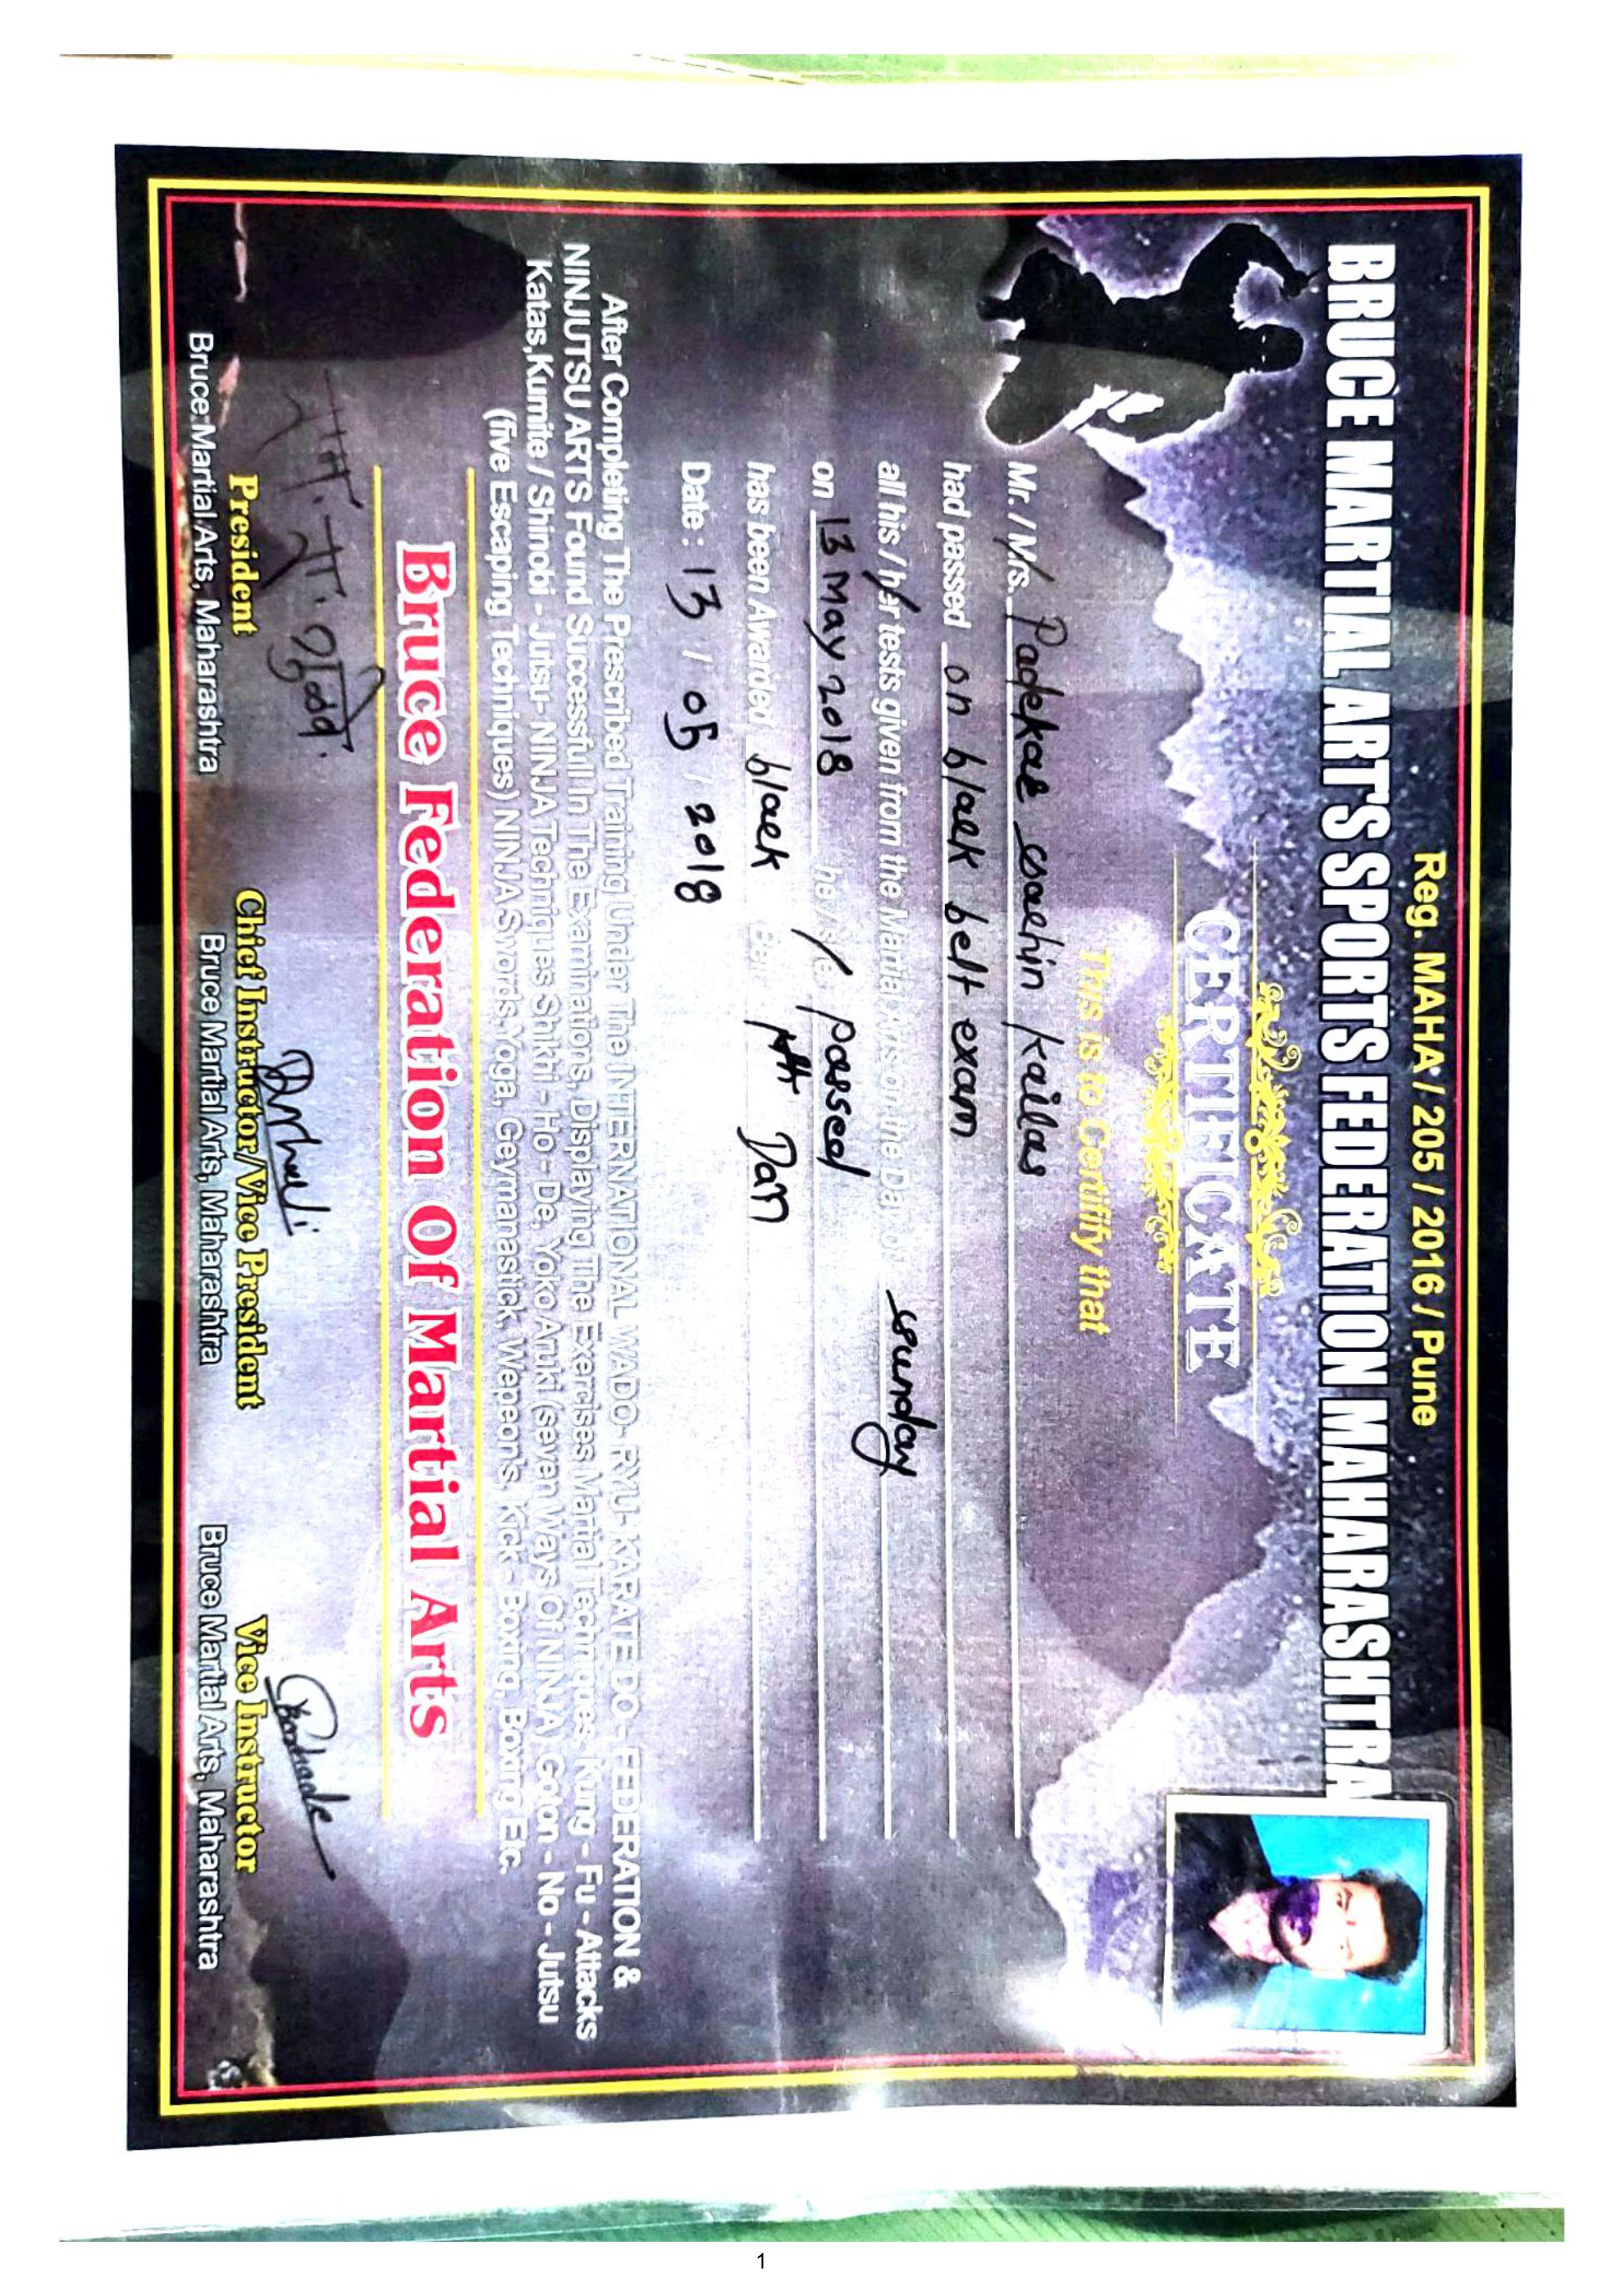 Reg. MAHA / 205 / 2016 / Pune
BRUCE MARTIAL ART'S SPORTS FEDERATION MAHARASHTRA
CERTIFICATE
This is to Certifify that
Mr. / Mrs. Padekar Sachin Kailas
had passed on black belt exam
all his / her tests given from the Martial Arts on the Day of Sunday
on 13 May 2018 he / she passed
has been Awarded black Belt 1th Dan
Date : 13 / 05 / 2018
After Completing The Prescribed Training Under The INTERNATIONAL WADO- RYU- KARATE DO - FEDERATION &
NINJUTSU ARTS Found Successfull In The Examinations, Displaying The Exercises Martial Techniques, Kung - Fu - Attacks
Katas,Kumite / Shinobi - Jutsu- NINJA Techniques Shikhi - Ho - De, Yoko Aruki (seven Ways Of NINJA) Goton - No - Jutsu
(five Escaping Techniques) NINJA Swords,Yoga, Geymanastick, Wepeon's, Kick - Boxing, Boxing Etc.
Bruce Federation Of Martial Arts
President Chief Instructor/Vice President Vice Instructor
Bruce Martial Arts, Maharashtra Bruce Martial Arts, Maharashtra Bruce Martial Arts, Maharashtra
1